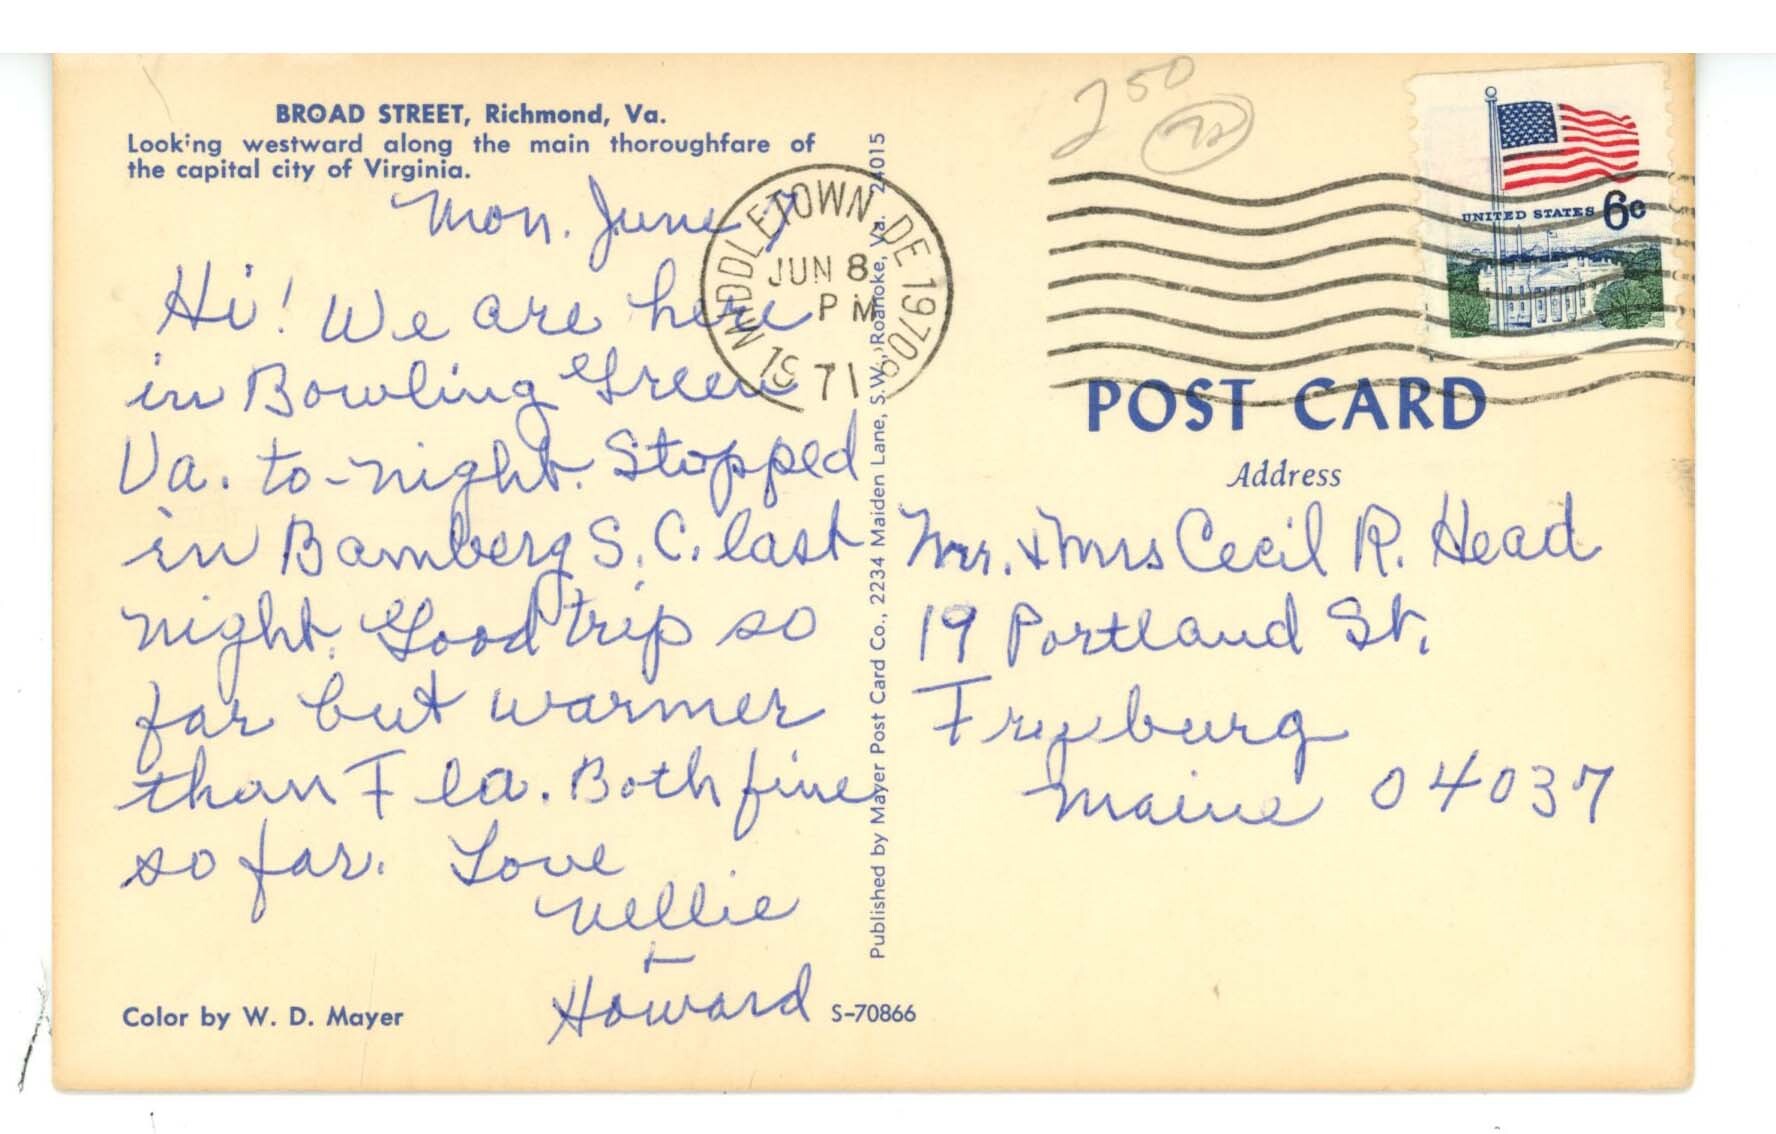 BROAD STREET, Richmond, Va.
Looking westward along the main thoroughfare of
the capital city of Virginia.
Mon. June 7
Hi! We are here
in Bowling Green
Va. to-night. Stopped
in Bamberg S.C. last
night. Good trip so
far but warmer
than Fla. Both fine
so far. Love
Nellie
+
Howard
Color by W. D. Mayer
S-70866
Published by Mayer Post Card Co., 2234 Maiden Lane, S.W., Roanoke, Va. 24015
MIDDLETOWN, DE 19709
JUN 8
PM
1971
250
72
UNITED STATES 6c
POST CARD
Address
Mr. & Mrs Cecil R. Head
19 Portland St.
Fryburg
Maine 04037